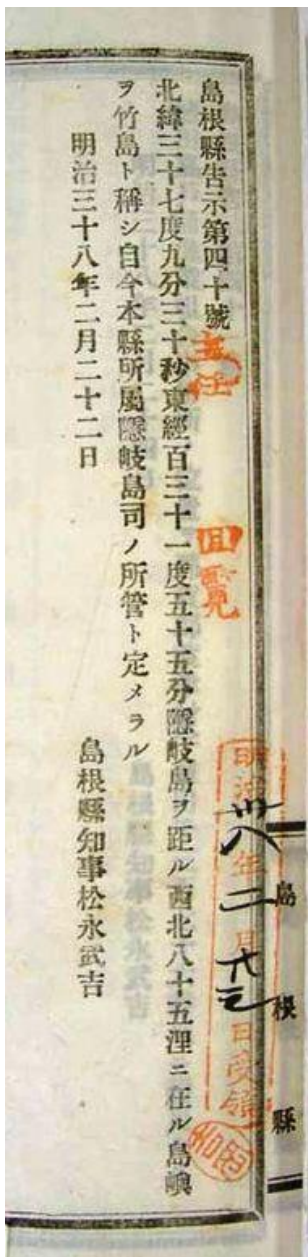 島根縣告示第四十號
主任
回覽
北緯三十七度九分三十秒東經百三十一度五十五分隱岐島ヲ距ル西北八十五浬ニ在ル島嶼
ヲ竹島ト稱シ自今本縣所屬隱岐島司ノ所管ト定メラル
明治三十八年二月二十二日
島根縣知事松永武吉
明治卅八年二月廿三日受領
島根縣